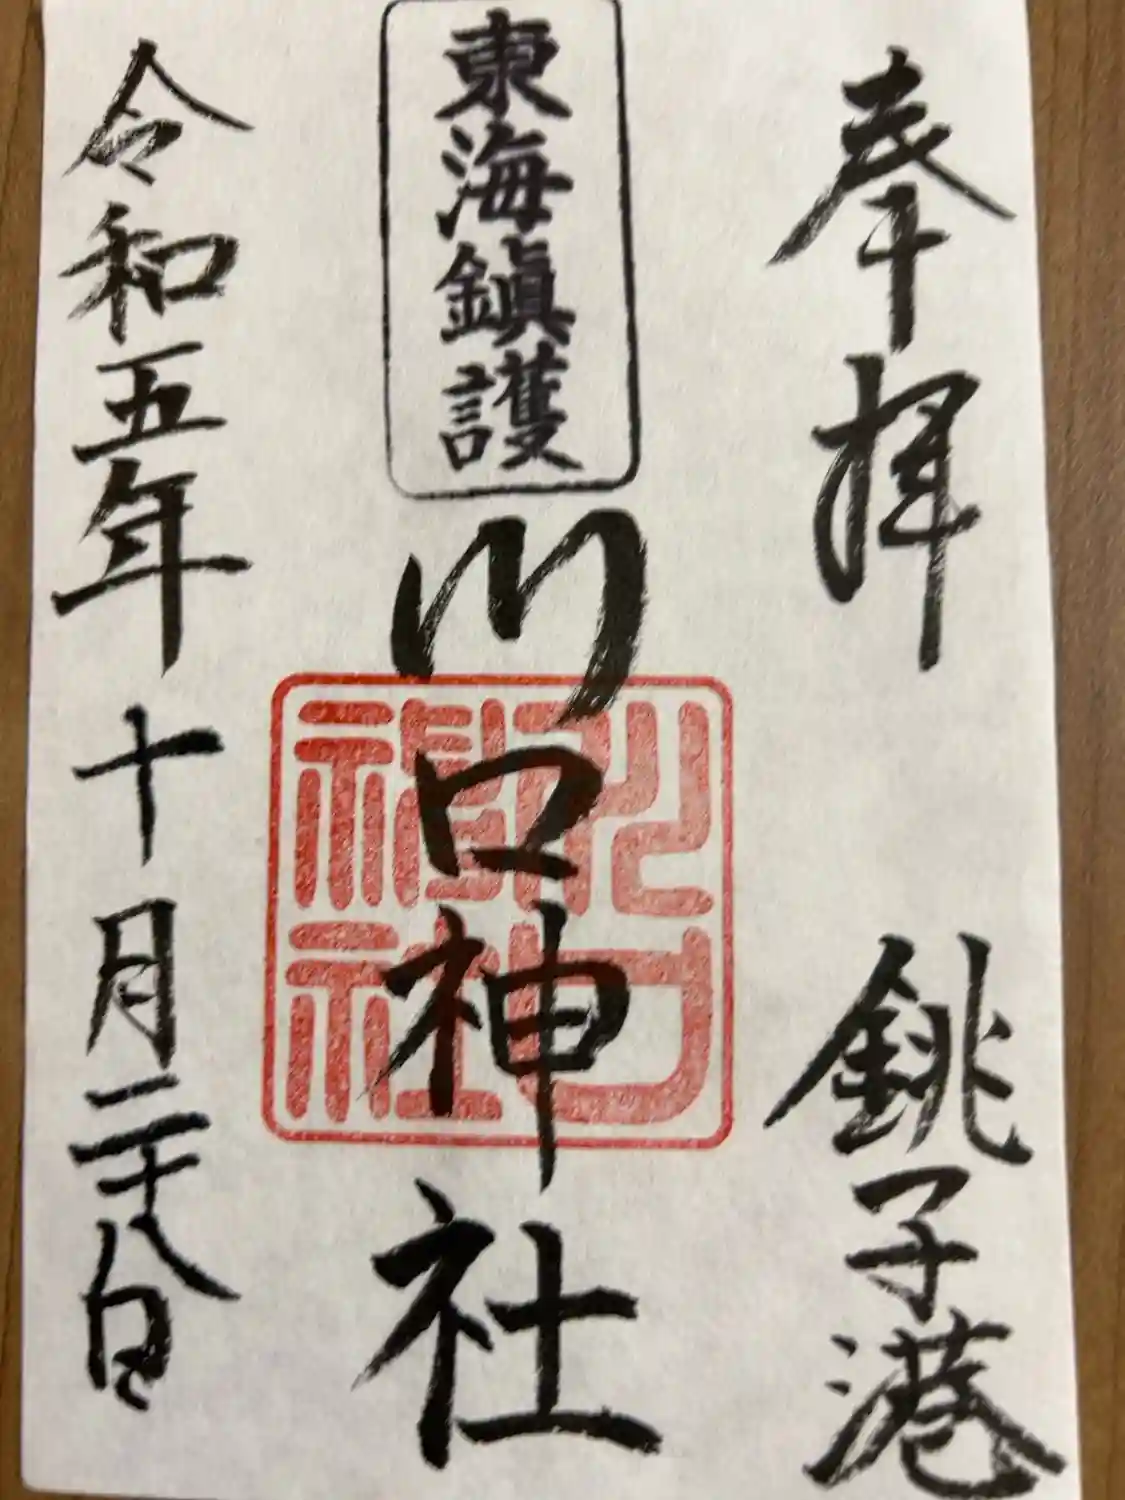 奉拝 銚子港
東海鎮護
川口神社
川口神社
令和五年十月二十八日